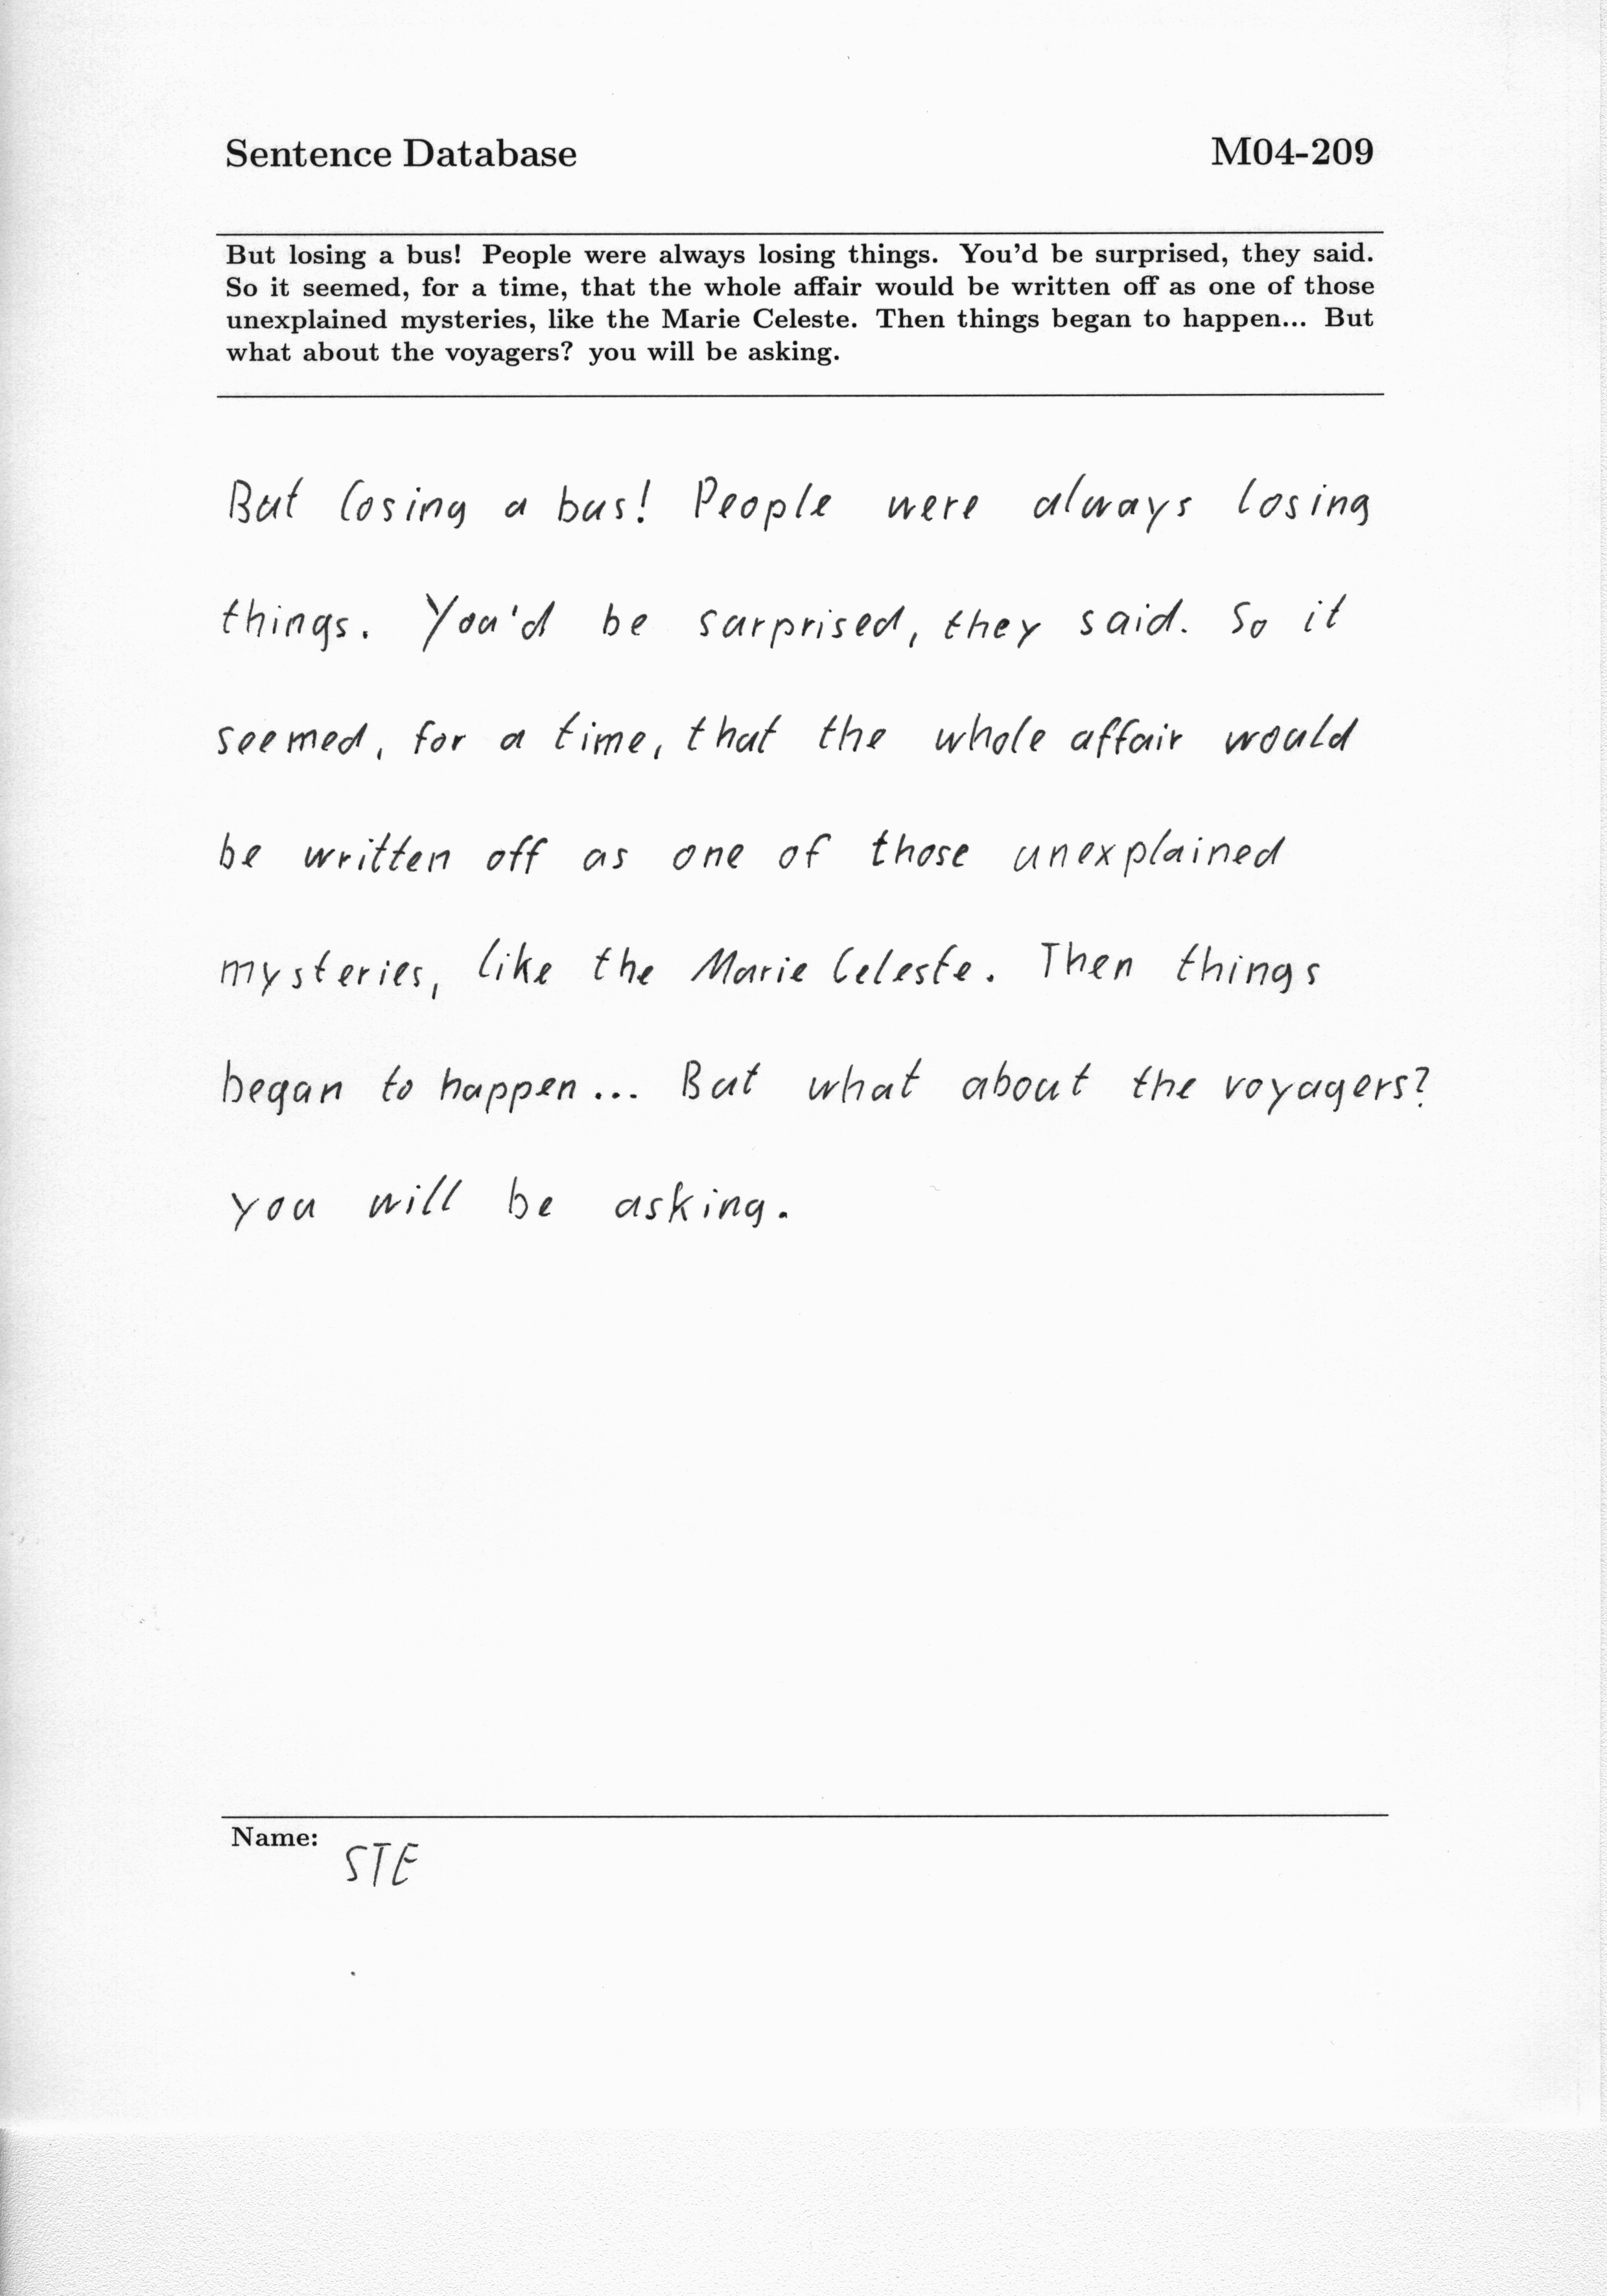 Sentence Database M04-209
But losing a bus! People were always losing things. You'd be surprised, they said.
So it seemed, for a time, that the whole affair would be written off as one of those
unexplained mysteries, like the Marie Celeste. Then things began to happen... But
what about the voyagers? you will be asking.
But losing a bus! People were always losing
things. You'd be surprised, they said. So it
seemed, for a time, that the whole affair would
be written off as one of those unexplained
mysteries, like the Marie Celeste. Then things
began to happen... But what about the voyagers?
you will be asking.
Name: STE